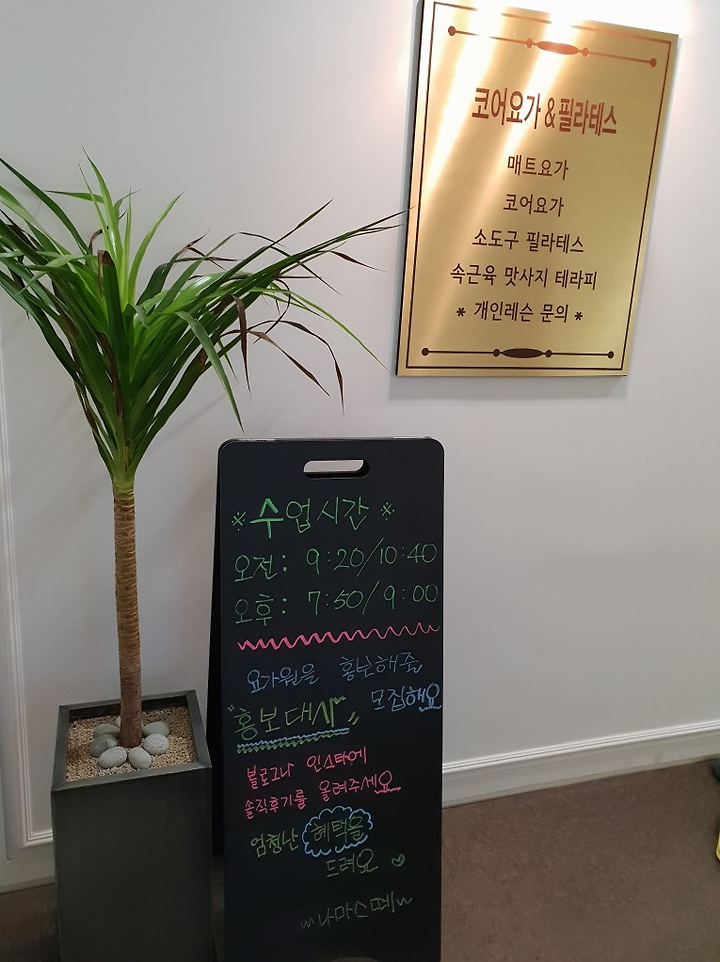 코어요가&필라테스
매트요가
코어요가
소도구 필라테스
속근육 맛사지 테라피
* 개인레슨 문의 *
※수업시간※
오전: 9:20/10:40
오후: 7:50/9:00
요가원을 홍보해줄
"홍보대사" 모집해요
블로그나 인스타에
솔직후기를 올려주세요
엄청난 혜택을
드려요 ♡
~나마스떼~